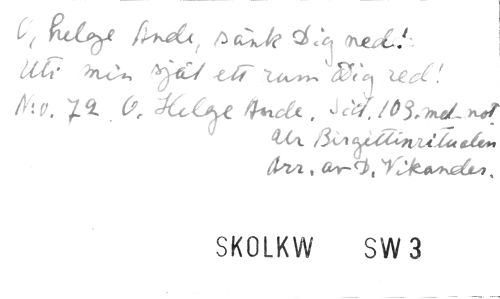 O, helge Ande, sänk Dig ned!
Uti min själ ett rum Dig red!
N:o. 72. O, Helge Ande. Sid. 103. med not
Ur Birgittinritualen
Arr. av D. Vikander.
SKOLKW SW3